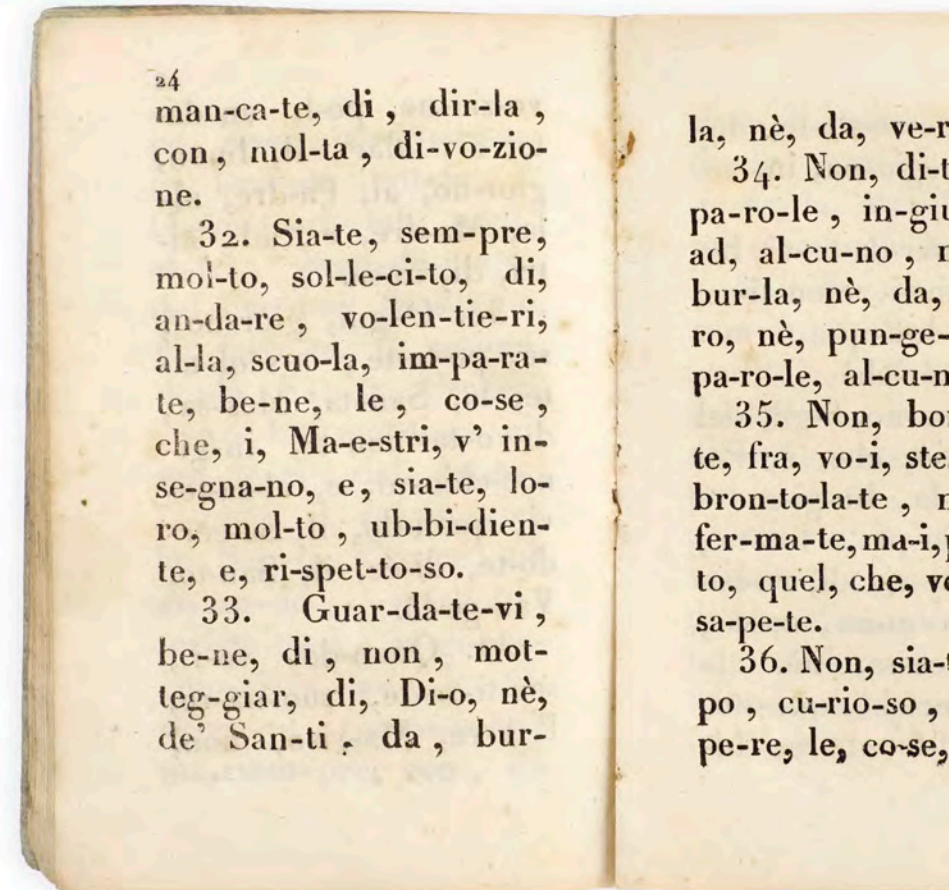 24
man-ca-te, di , dir-la ,
con , mol-ta , di-vo-zio-
ne.
32. Sia-te, sem-pre,
mol-to, sol-le-ci-to, di,
an-da-re , vo-len-tie-ri,
al-la, scuo-la, im-pa-ra-
te, be-ne, le , co-se ,
che, i, Ma-e-stri, v' in-
se-gna-no, e, sia-te, lo-
ro, mol-to , ub-bi-dien-
te, e, ri-spet-to-so.
33. Guar-da-te-vi ,
be-ne, di , non , mot-
teg-giar, di, Di-o, nè,
de' San-ti , da , bur-
la, nè, da,
34. Non,
pa-ro-le ,
ad, al-cu-no ,
bur-la, nè, da,
ro, nè, pun-ge-
pa-ro-le,
35. Non,
te, fra, vo-i,
bron-to-la-te ,
fer-ma-te, ma-i,
to, quel, che,
sa-pe-te.
36. Non,
po , cu-rio-so ,
pe-re, le, co-se,